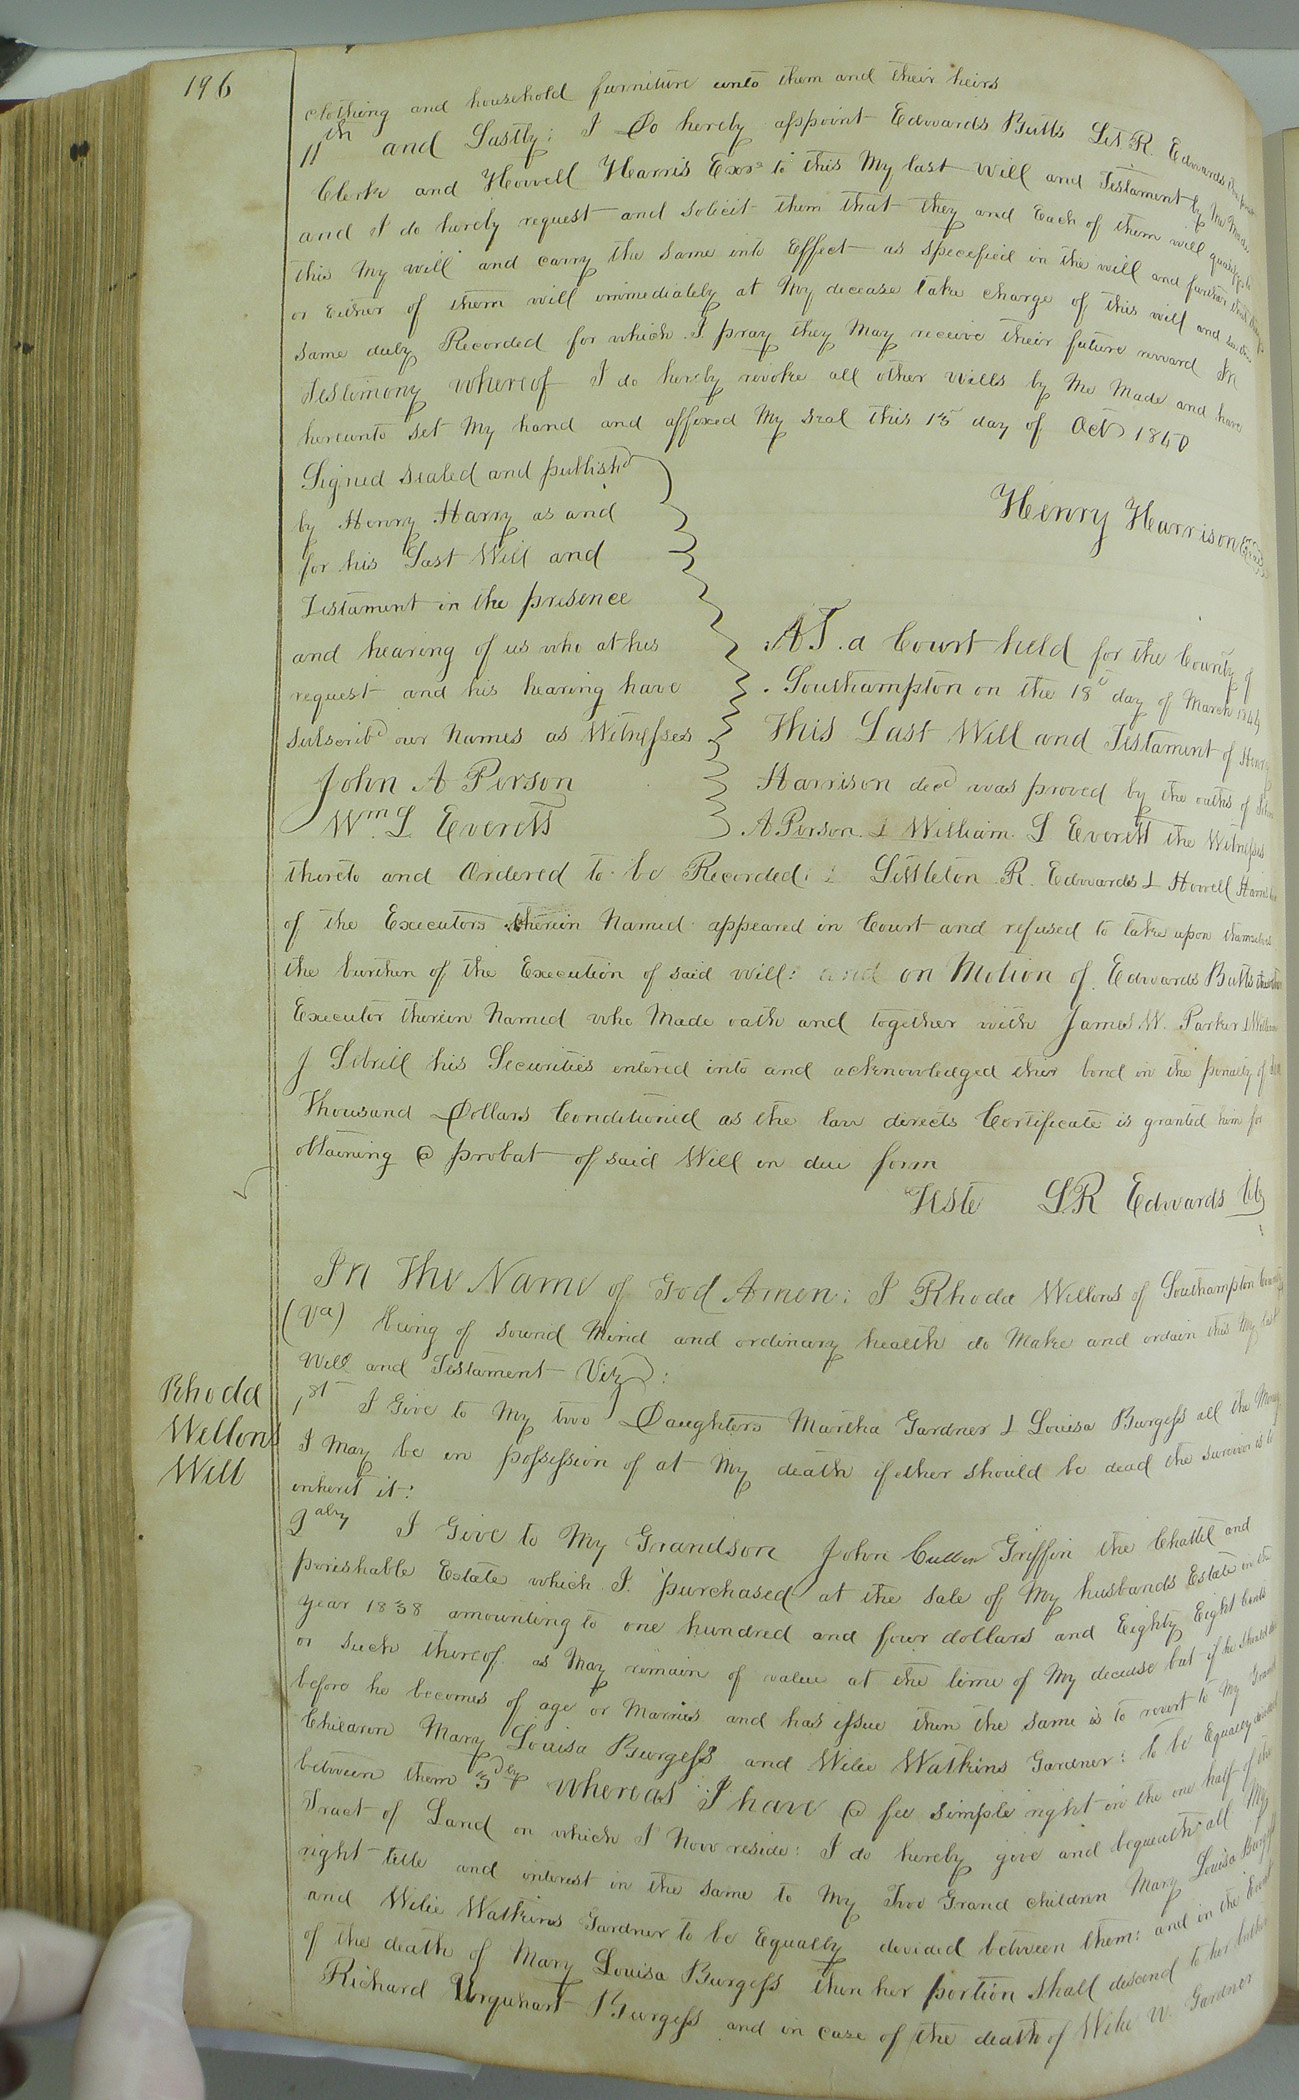 196
clothing and household furniture unto them and their heirs
11th and Lastly: I Do hereby appoint Edwards Butts Lit. R. Edwards
Clerk and Howell Harris Exors to this My last Will and Testament by Me Made
and I do hereby request and solicit them that they and Each of them will qualify to
this My will and carry the same into Effect as specified in the will and further that they
or Either of them will immediately at My decease take charge of this will and
same duly Recorded for which I pray they May receive their future reward In
Testimony whereof I do hereby revoke all other wills by Me Made and have
hereunto set My hand and affixed My seal this 15 day of Oct 1840
Henry Harrison
Signed sealed and publishd
by Henry Harry as and
for his Last Will and
Testament in the presence
and hearing of us who at his
request and his hearing have
subscribd our Names as Witnesses
John A Person
Wm. L Everett
AT. a Court held for the County of
Southampton on the 18th day of March 1844
This Last Will and Testament of Henry
Harrison decd was proved by the oaths of John
A Person & William L Everett the Witnesses
thereto and Ordered to be Recorded: & Littleton R. Edwards & Howell Harris
of the Executors therein Named appeared in Court and refused to take upon themselves
the burthen of the Execution of said will: and on Motion of Edwards Butts
Executor therein Named who Made oath and together with James W. Parker & William
J Sebrill his Securities entered into and acknowledged their bond in the penalty of
Thousand Dollars Conditioned as the law directs Certificate is granted him for
obtaining a probat of said Will in due form
Teste L.R Edwards Clk
Rhoda
Wellons
Will
In The Name of God Amen: I Rhoda Wellons of Southampton County
(Va) being of sound Mind and ordinary health do Make and ordain this My last
Will and Testament Viz:
1st I Give to My two Daughters Martha Gardner & Louisa Burgess all the Money
I May be in possession of at My death if either should be dead the survivor is to
inherit it:
2ndly I Give to My Grandson John Cullen Griffin the Chattel and
perishable Estate which I purchased at the sale of My husbands Estate in the
year 1838 amounting to one hundred and four dollars and Eighty Eight Cents
or such thereof as May remain of value at the time of My decease but if he should die
before he becomes of age or Marries and has issue then the same is to revert to My Grand
Children Mary Louisa Burgess and Wilie Watkins Gardner: to be Equally divided
between them 3dly Whereas I have a fee simple right in the one half of the
Tract of Land on which I Now reside: I do hereby give and bequeath all My
right title and interest in the same to My Two Grand children Mary Louisa Burgess
and Wilie Watkins Gardner to be Equally devided between them: and in the Event
of the death of Mary Louisa Burgess then her portion shall descend to her brother
Richard Urquhart Burgess and in case of the death of Wilie W. Gardner